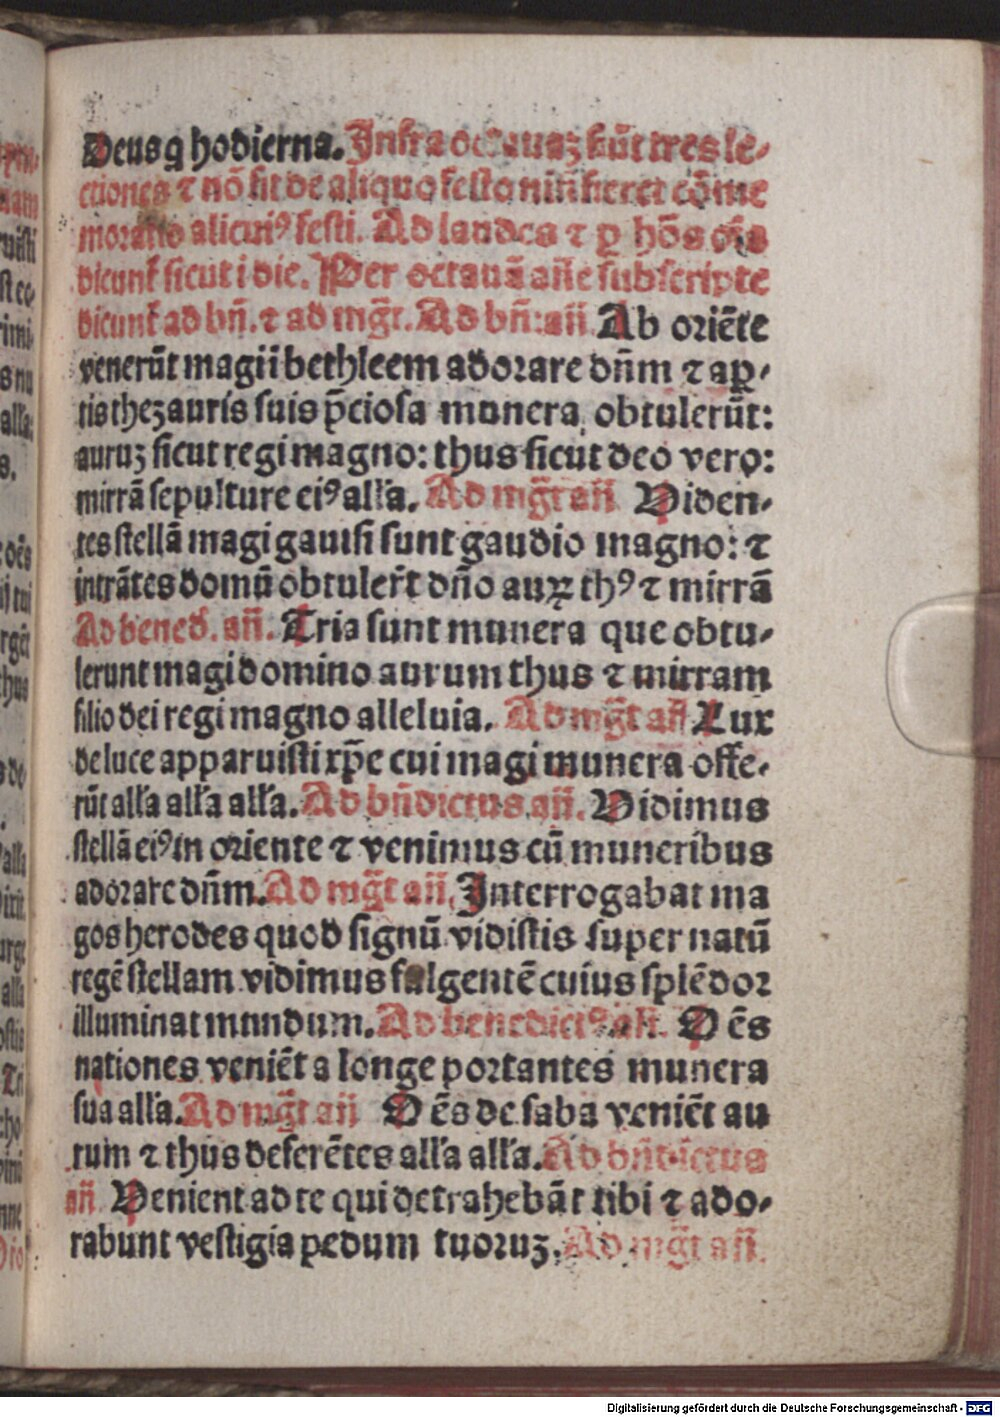 Deus q hodierna. Infra octauaꝫ sūt tres le-
ctiones ⁊ nō fit de aliquo festo nisi fieret cōme
moratio alicui⁹ festi. Ad laudes ⁊ p̲ hōs oēs
dicunt̄ sicut i die. Per octauā añe subscripte
dicunt̄ ad bñ. ⁊ ad mḡt. Ad bñ: añ Ab oriēte
venerūt magi i bethleem adorare dñm ⁊ ap̲-
tis thezauris suis p̄ciosa munera obtulerūt:
auruꝫ sicut regi magno: thus sicut deo vero:
mirrā sepulture ei⁹ alľa. Ad mḡt añ Viden-
tes stellā magi gauisi sunt gaudio magno: ⁊
intrātes domū obtuler̄t dño auꝝ th⁹ ⁊ mirrā
Ad bened. añ. Tria sunt munera que obtu-
lerunt magi domino aurum thus ⁊ mirram
filio dei regi magno alleluia. Ad mḡt añ Lux
de luce apparuisti xp̄e cui magi munera offe-
rūt alľa alľa alľa. Ad bñdictus añ. Vidimus
stellā ei⁹ in oriente ⁊ venimus cū muneribus
adorare dñm. Ad mḡt añ. Interrogabat ma
gos herodes quod signū vidistis super natū
regē stellam vidimus fulgentē cuius splēdor
illuminat mundum. Ad benedict⁹ añ. Oēs
nationes veniēt a longe portantes munera
sua alľa. Ad mḡt añ Oēs de saba veniēt au
rum ⁊ thus deferētes alľa alľa. Ad bñdictus
añ Venient ad te qui detrahebāt tibi ⁊ ado-
rabunt vestigia pedum tuoruꝫ. Ad mḡt añ.
Digitalisierung gefördert durch die Deutsche Forschungsgemeinschaft - DFG